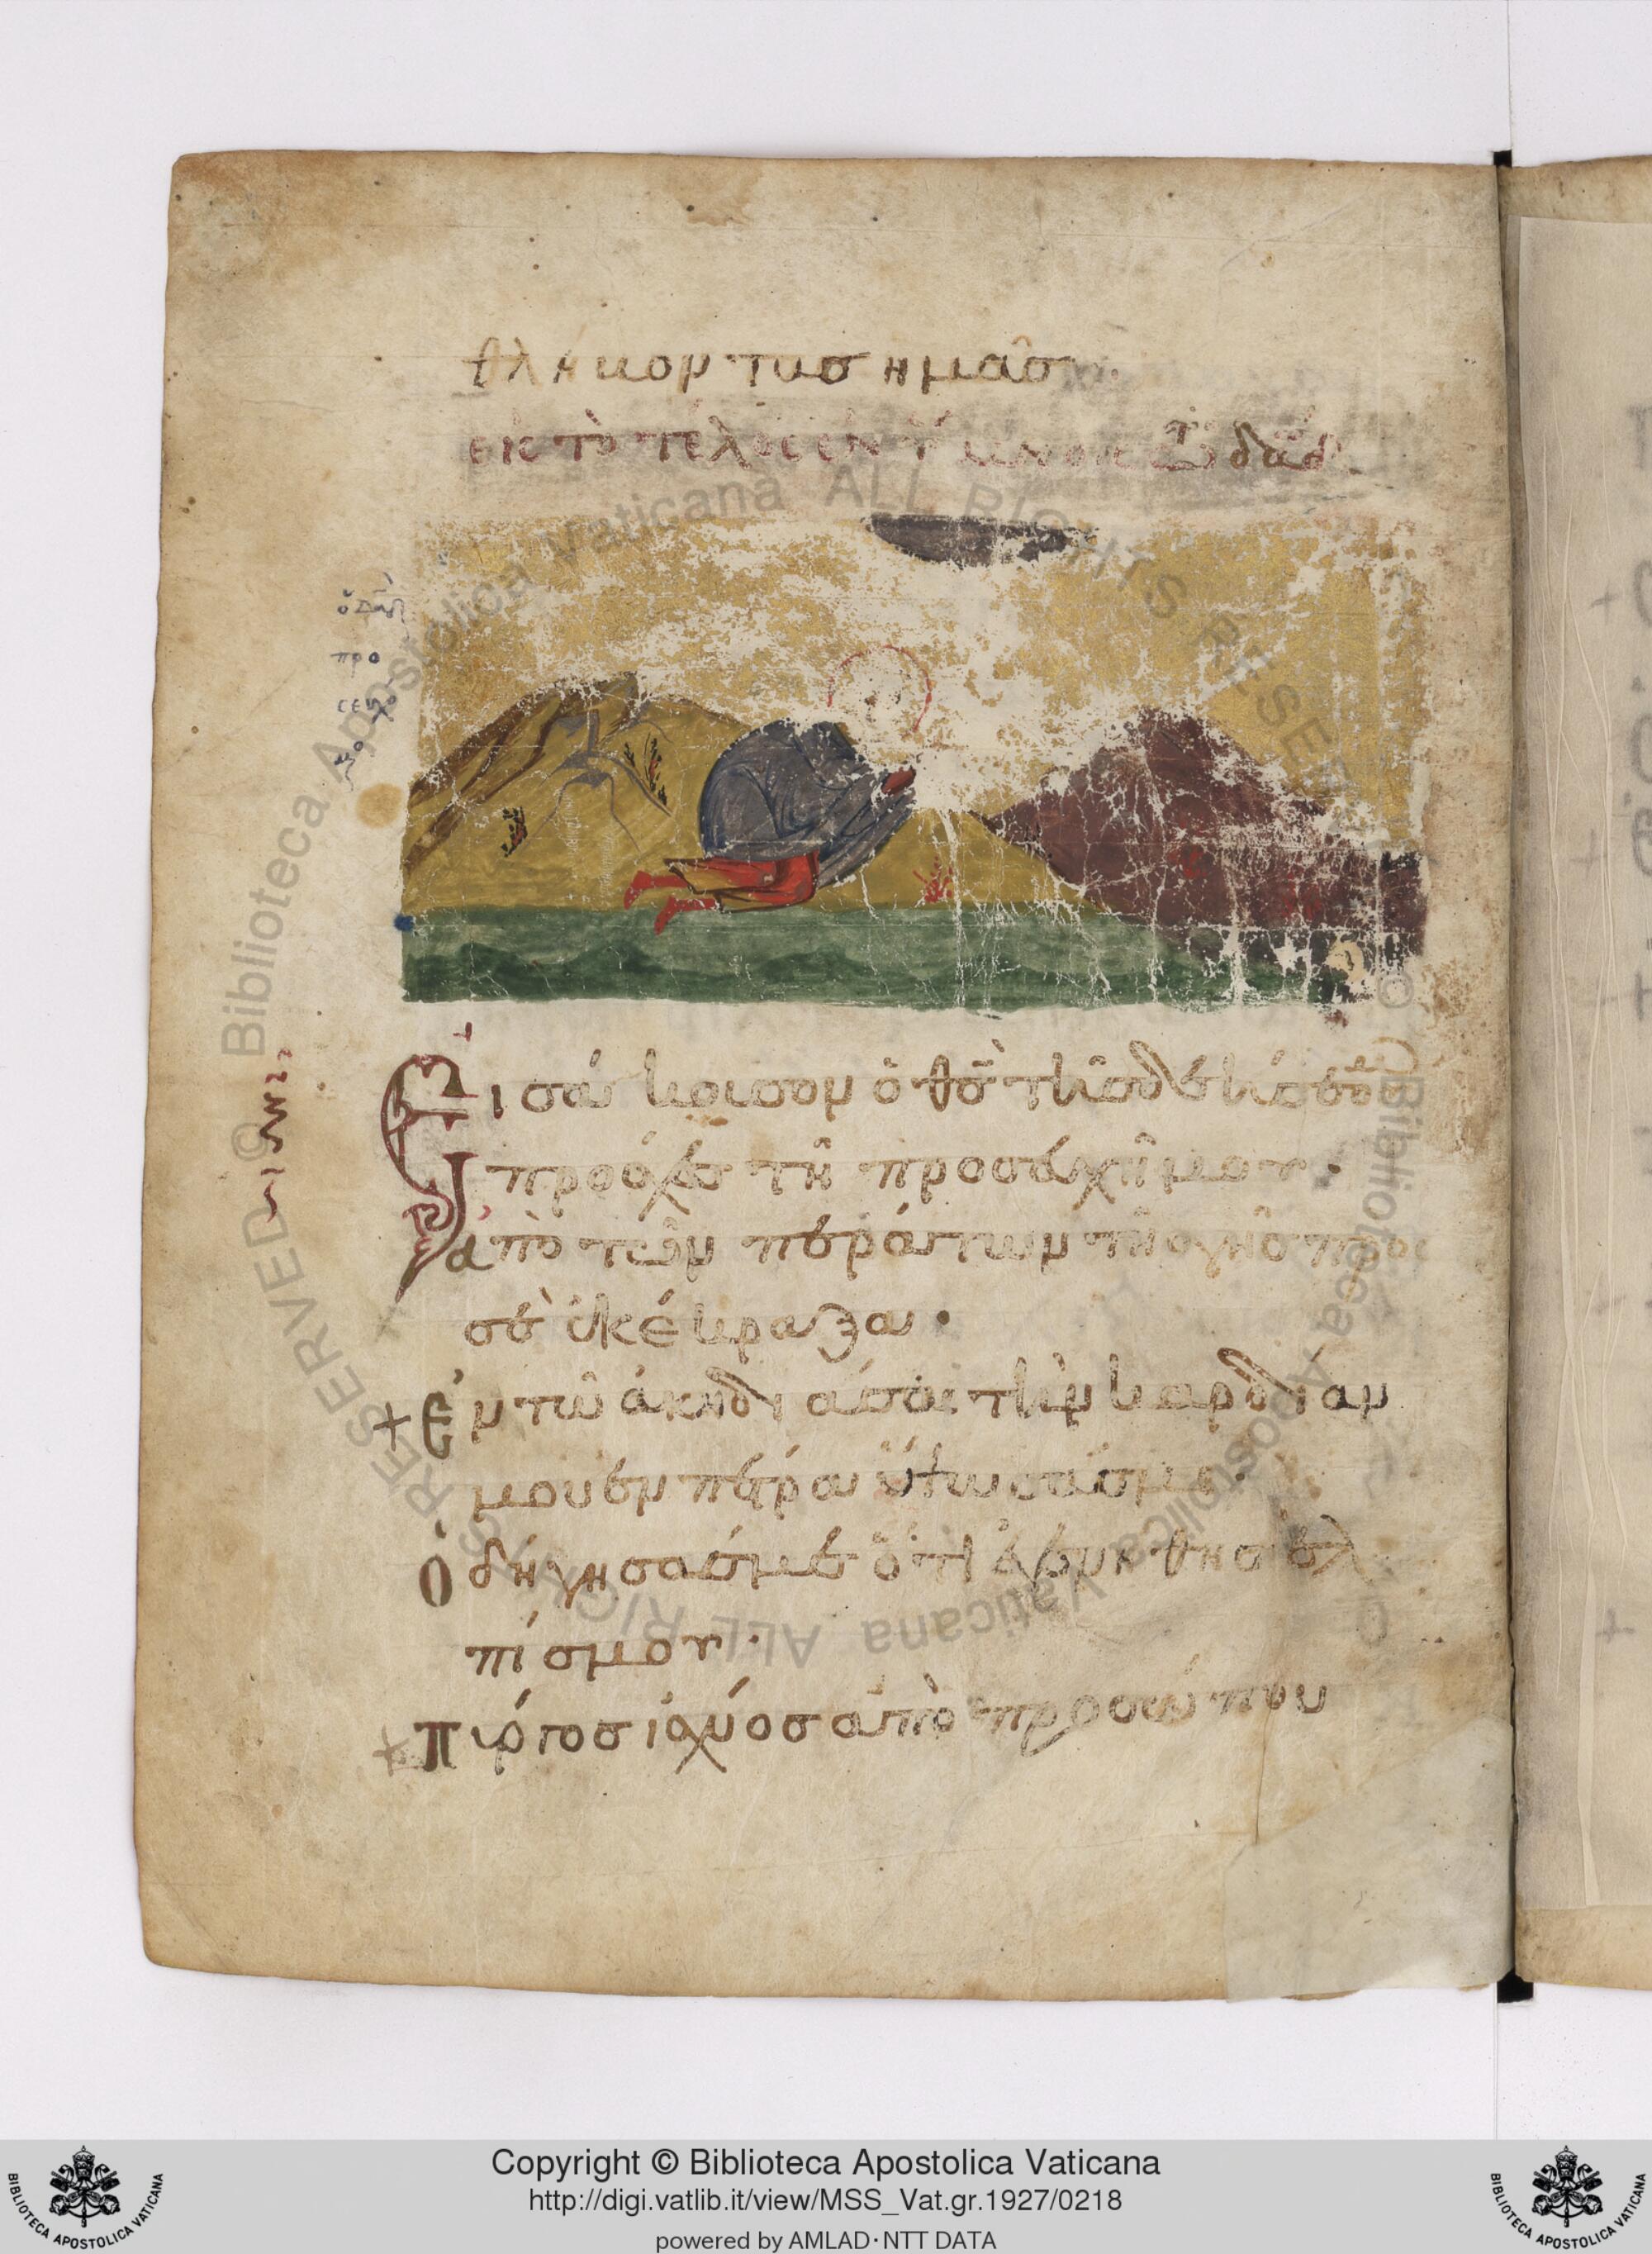 θλήκοντασ ημᾶσ
εις τὸ τέλος ἐν ὕμνοις τῶ δᾱδ
ὁ δᾱδ
προ
σευχο
Εισάκουσον ὁ θσ̄ τῆσ δεήσεωσ
προσχεσ τῆ προσευχῆ μου·
ἀπὸ τῶν περάτων τῆσ γῆσ προσ
σὲ ἐκέκραξα·
+ ἐν τῶ ἀκηδιάσαι τὴν καρδίαν
μου ἐν πέτρα ὕψωσάσ με·
ὁδήγησάσ με ὅτι ἐγενήθησ ἐλ
πίσ μου·
+ πύργοσ ἰσχύοσ ἀπὸ προσώπου
© Biblioteca Apostolica Vaticana ALL RIGHTS RESERVED
© Biblioteca Apostolica Vaticana ALL RIGHTS RESERVED
Copyright © Biblioteca Apostolica Vaticana
http://digi.vatlib.it/view/MSS_Vat.gr.1927/0218
powered by AMLAD·NTT DATA
BIBLIOTECA APOSTOLICA VATICANA
BIBLIOTECA APOSTOLICA VATICANA